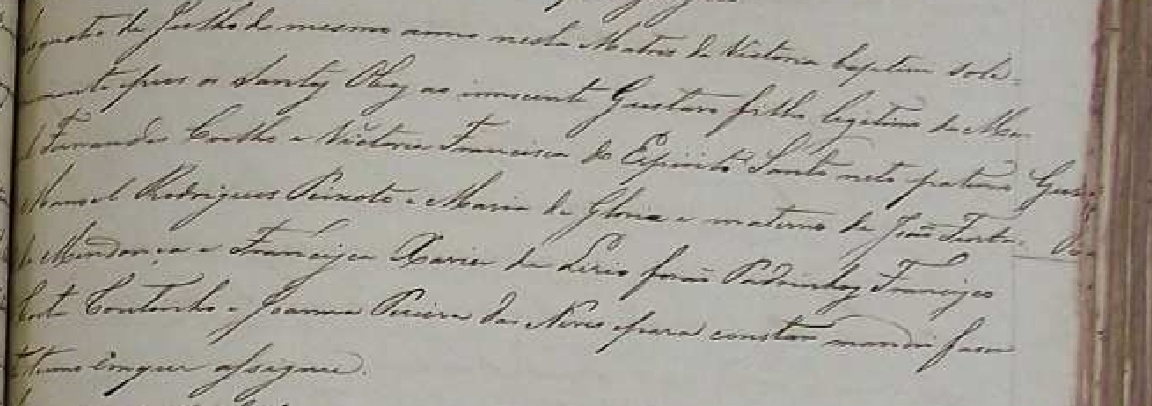 de Julho do mesmo anno nesta Matris da Victoria baptizei sole-
mente puz os Santos Oleos ao innocente Gustavo filho legitimo de Ma-
l Fernandes Coelho e Victoria Francisca do Espirito Santo neto paterno Gus
Manoel Rodrigues Peixoto e Maria da Gloria e materno de João Furta-
do Mendonça e Francisca Xavier de Liris forão Padrinhos Francisco
Coutinho e Joanna Pereira das Neves e para constar mandei faser
em que assignei.